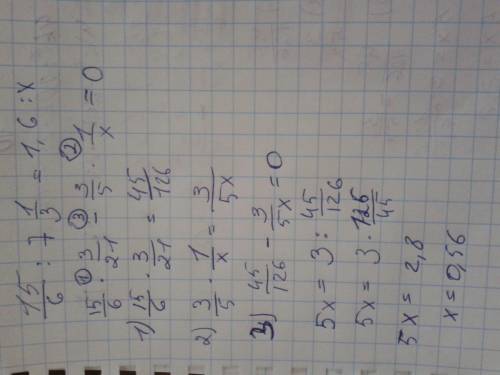 15/6 : 7 1/3 = 1,6 : x
15/6 ·① 3/21 =③ 3/5 ·② 1/x = 0
1) 15/6 · 3/21 = 45/126
2) 3/5 · 1/x = 3/5x
3) 45/126 - 3/5x = 0
5x = 3 : 45/126
5x = 3 · 126/45
5x = 2,8
x = 0,56